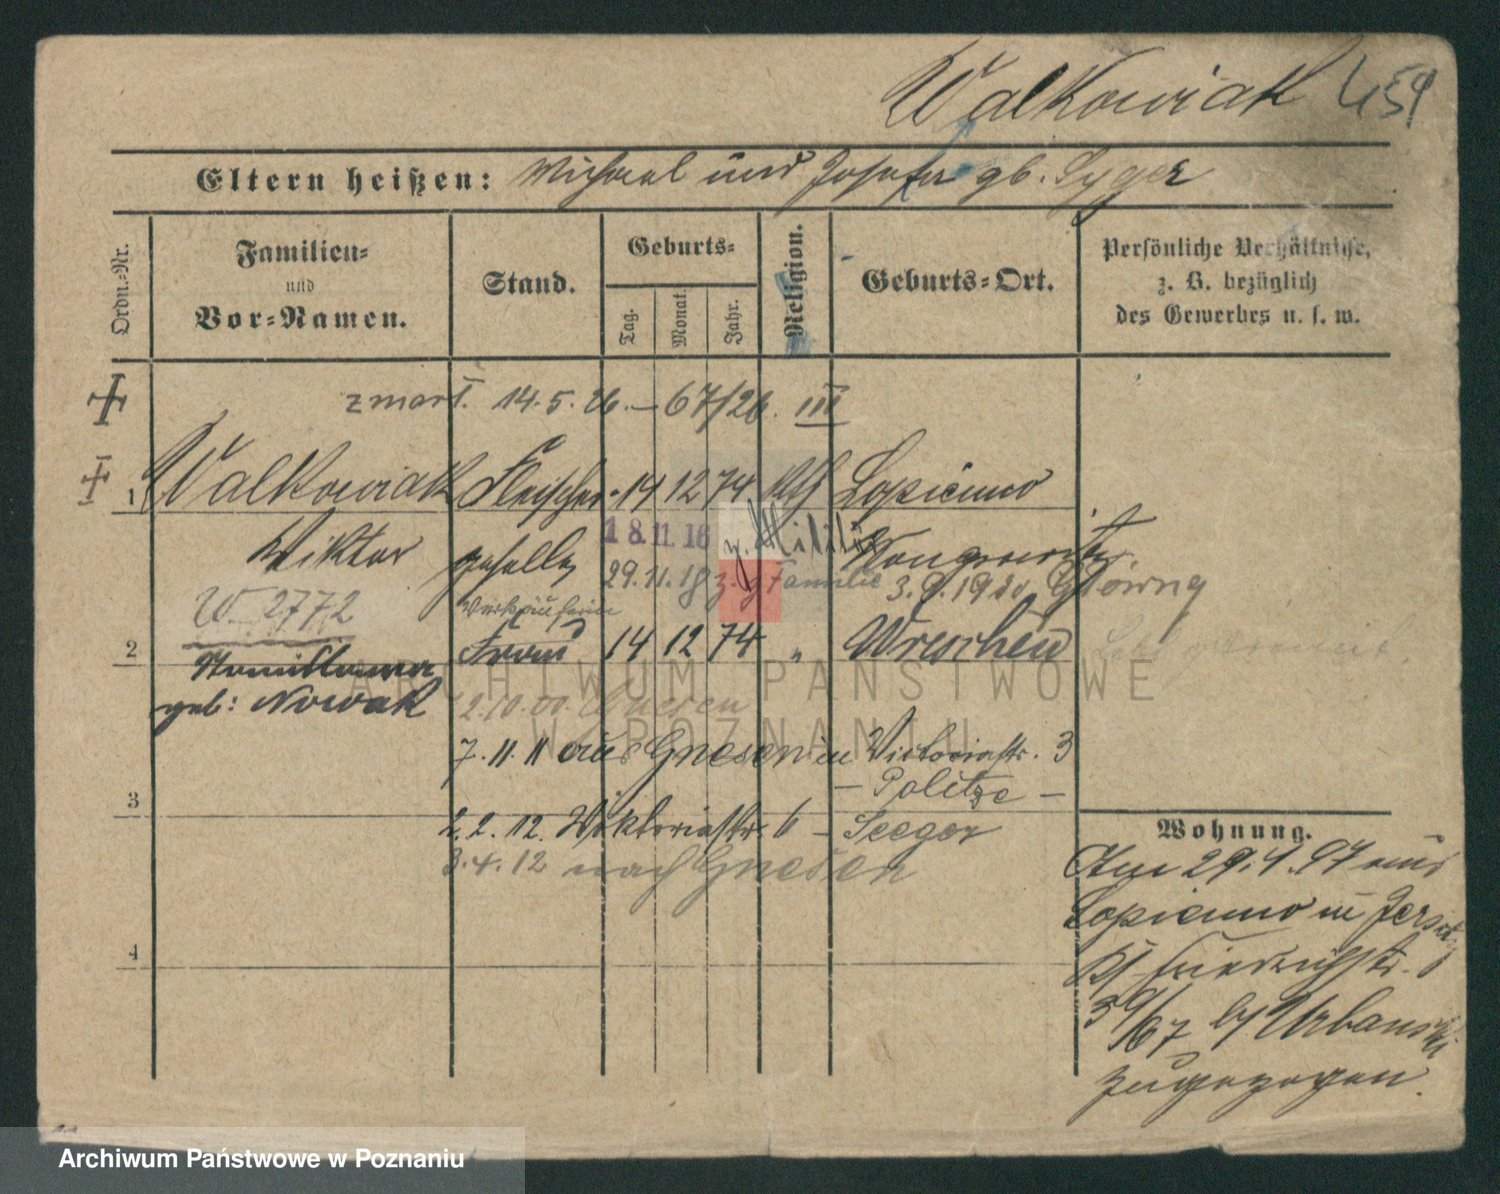 Walkowiak 459
Eltern heißen: Michael und Josefa gb. Syger
Ordn.-Nr.
Familien- und Vor-Namen.
Stand.
Geburts-
Tag. Monat. Jahr.
Religion.
Geburts-Ort.
Persönliche Verhältnisse, z. B. bezüglich des Gewerbes u. s. w.
zmarł 14.5.26. – 67/26. III
1 Walkowiak Fleischer- 14 12 74 Kth Lopienno
Wiktor geselle 18.11.16 z. Militär Wongrowitz
29.11.18 z. Familie 3.9.1920 Główna
W. 2772 Verkäuferin
2 Frau 14 12 74 " Wreschen
Stanislawa
geb: Nowak 2.10.00. Gnesen
7.11.11 aus Gnesen in Victoriastr. 3
– Politze –
3
2.2.12. Wiktoriastr. 6 – Seeger
3.4.12 nach Gnesen
4
Wohnung.
Am 29.1.97 aus
Lopienno in Jersitz
Friedrichstr.
by Urbanski
zugezogen.
ARCHIWUM PAŃSTWOWE
W POZNANIU
Archiwum Państwowe w Poznaniu